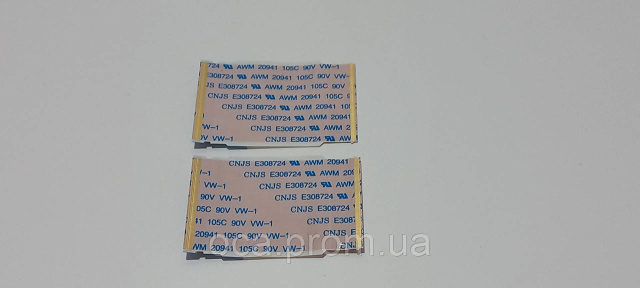 8724 AWM 20941 105C 90V VW-1
E308724 AWM 20941 105C 90V VW-
CNJS E308724 AWM 20941 105C 90V
CNJS E308724 AWM 20941 105C 9
CNJS E308724 AWM 20941 105
VW-1 CNJS E308724 AWM 20941
0V VW-1 CNJS E308724 AWM 2
CNJS E308724 AWM 20941
CNJS E308724 AWM 20
VW-1 CNJS E308724 AW
90V VW-1 CNJS E308724
05C 90V VW-1 CNJS E3087
41 105C 90V VW-1 CNJS E308
20941 105C 90V VW-1 CNJS E
WM 20941 105C 90V VW-1 CNJS
oca.prom.ua